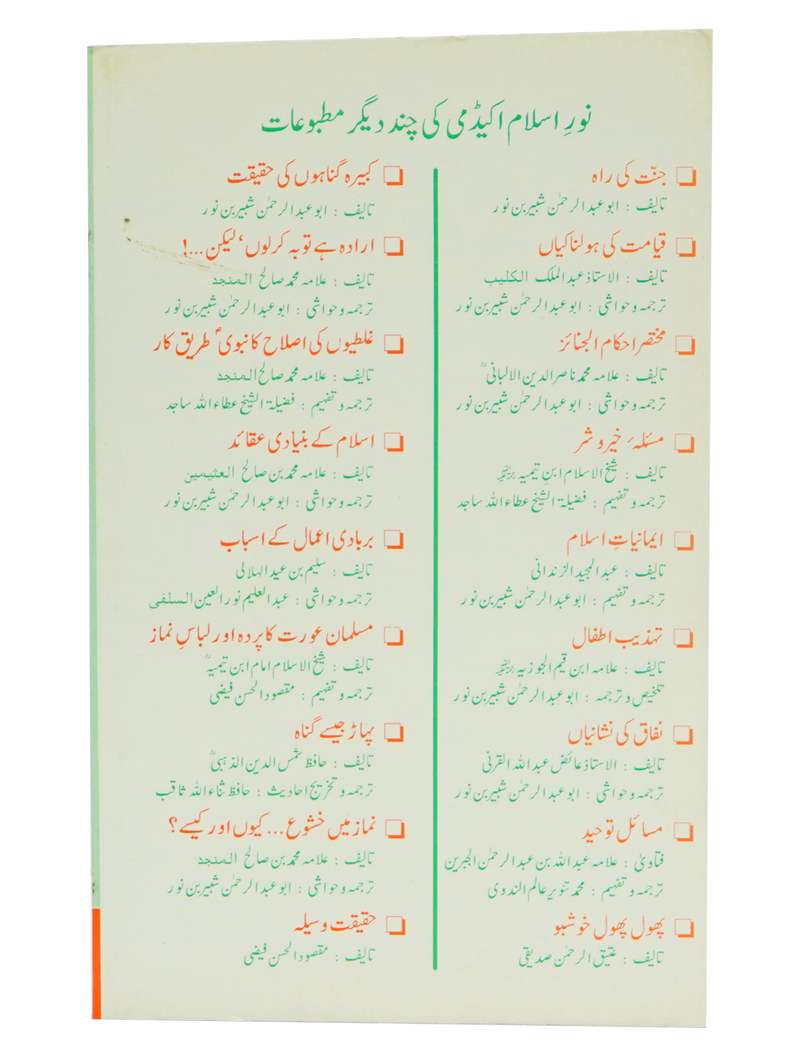 نورِ اسلام اکیڈمی کی چند دیگر مطبوعات
جنّت کی راہ
تالیف : ابو عبدالرحمٰن شبیر بن نور
قیامت کی ہولناکیاں
تالیف : الاستاذ عبدالملک الکلیب
ترجمہ و حواشی : ابو عبدالرحمٰن شبیر بن نور
مختصر احکام الجنائز
تالیف : علامہ محمد ناصر الدین الالبانیؒ
ترجمہ و حواشی : ابو عبدالرحمٰن شبیر بن نور
مسئلہ خیر و شر
تالیف : شیخ الاسلام ابنِ تیمیہ رحمۃ اللہ علیہ
ترجمہ و تفہیم : فضیلۃ الشیخ عطاء اللہ ساجد
ایمانیاتِ اسلام
تالیف : عبدالمجید الزندانی
ترجمہ و تفہیم : ابو عبدالرحمٰن شبیر بن نور
تہذیب اطفال
تالیف : علامہ ابن قیم الجوزیہ رحمۃ اللہ علیہ
تلخیص و ترجمہ : ابو عبدالرحمٰن شبیر بن نور
نفاق کی نشانیاں
تالیف : الاستاذ عائض عبداللہ القرنی
ترجمہ و حواشی : ابو عبدالرحمٰن شبیر بن نور
مسائل توحید
فتاویٰ : علامہ عبداللہ بن عبدالرحمٰن الجبرین
ترجمہ و تفہیم : محمد تنویر عالم الندوی
پھول پھول خوشبو
تالیف : عتیق الرحمٰن صدیقی
کبیرہ گناہوں کی حقیقت
تالیف : ابو عبدالرحمٰن شبیر بن نور
ارادہ ہے توبہ کرلوں، لیکن...!
تالیف : علامہ محمد صالح المنجد
ترجمہ و حواشی : ابو عبدالرحمٰن شبیر بن نور
غلطیوں کی اصلاح کا نبویؐ طریق کار
تالیف : علامہ محمد صالح المنجد
ترجمہ و تفہیم : فضیلۃ الشیخ عطاء اللہ ساجد
اسلام کے بنیادی عقائد
تالیف : علامہ محمد بن صالح العثیمین
ترجمہ و حواشی : ابو عبدالرحمٰن شبیر بن نور
بربادی اعمال کے اسباب
تالیف : سلیم بن عید الہلالی
ترجمہ و حواشی : عبدالعلیم نور العین السلفی
مسلمان عورت کا پردہ اور لباسِ نماز
تالیف : شیخ الاسلام امام ابن تیمیہؒ
ترجمہ و تفہیم : مقصود الحسن فیضی
پہاڑ جیسے گناہ
تالیف : حافظ شمس الدین الذہبیؒ
ترجمہ و تخریج احادیث : حافظ ثناء اللہ ثاقب
نماز میں خشوع ... کیوں اور کیسے؟
تالیف : علامہ محمد بن صالح المنجد
ترجمہ و حواشی : ابو عبدالرحمٰن شبیر بن نور
حقیقت وسیلہ
تالیف : مقصود الحسن فیضی